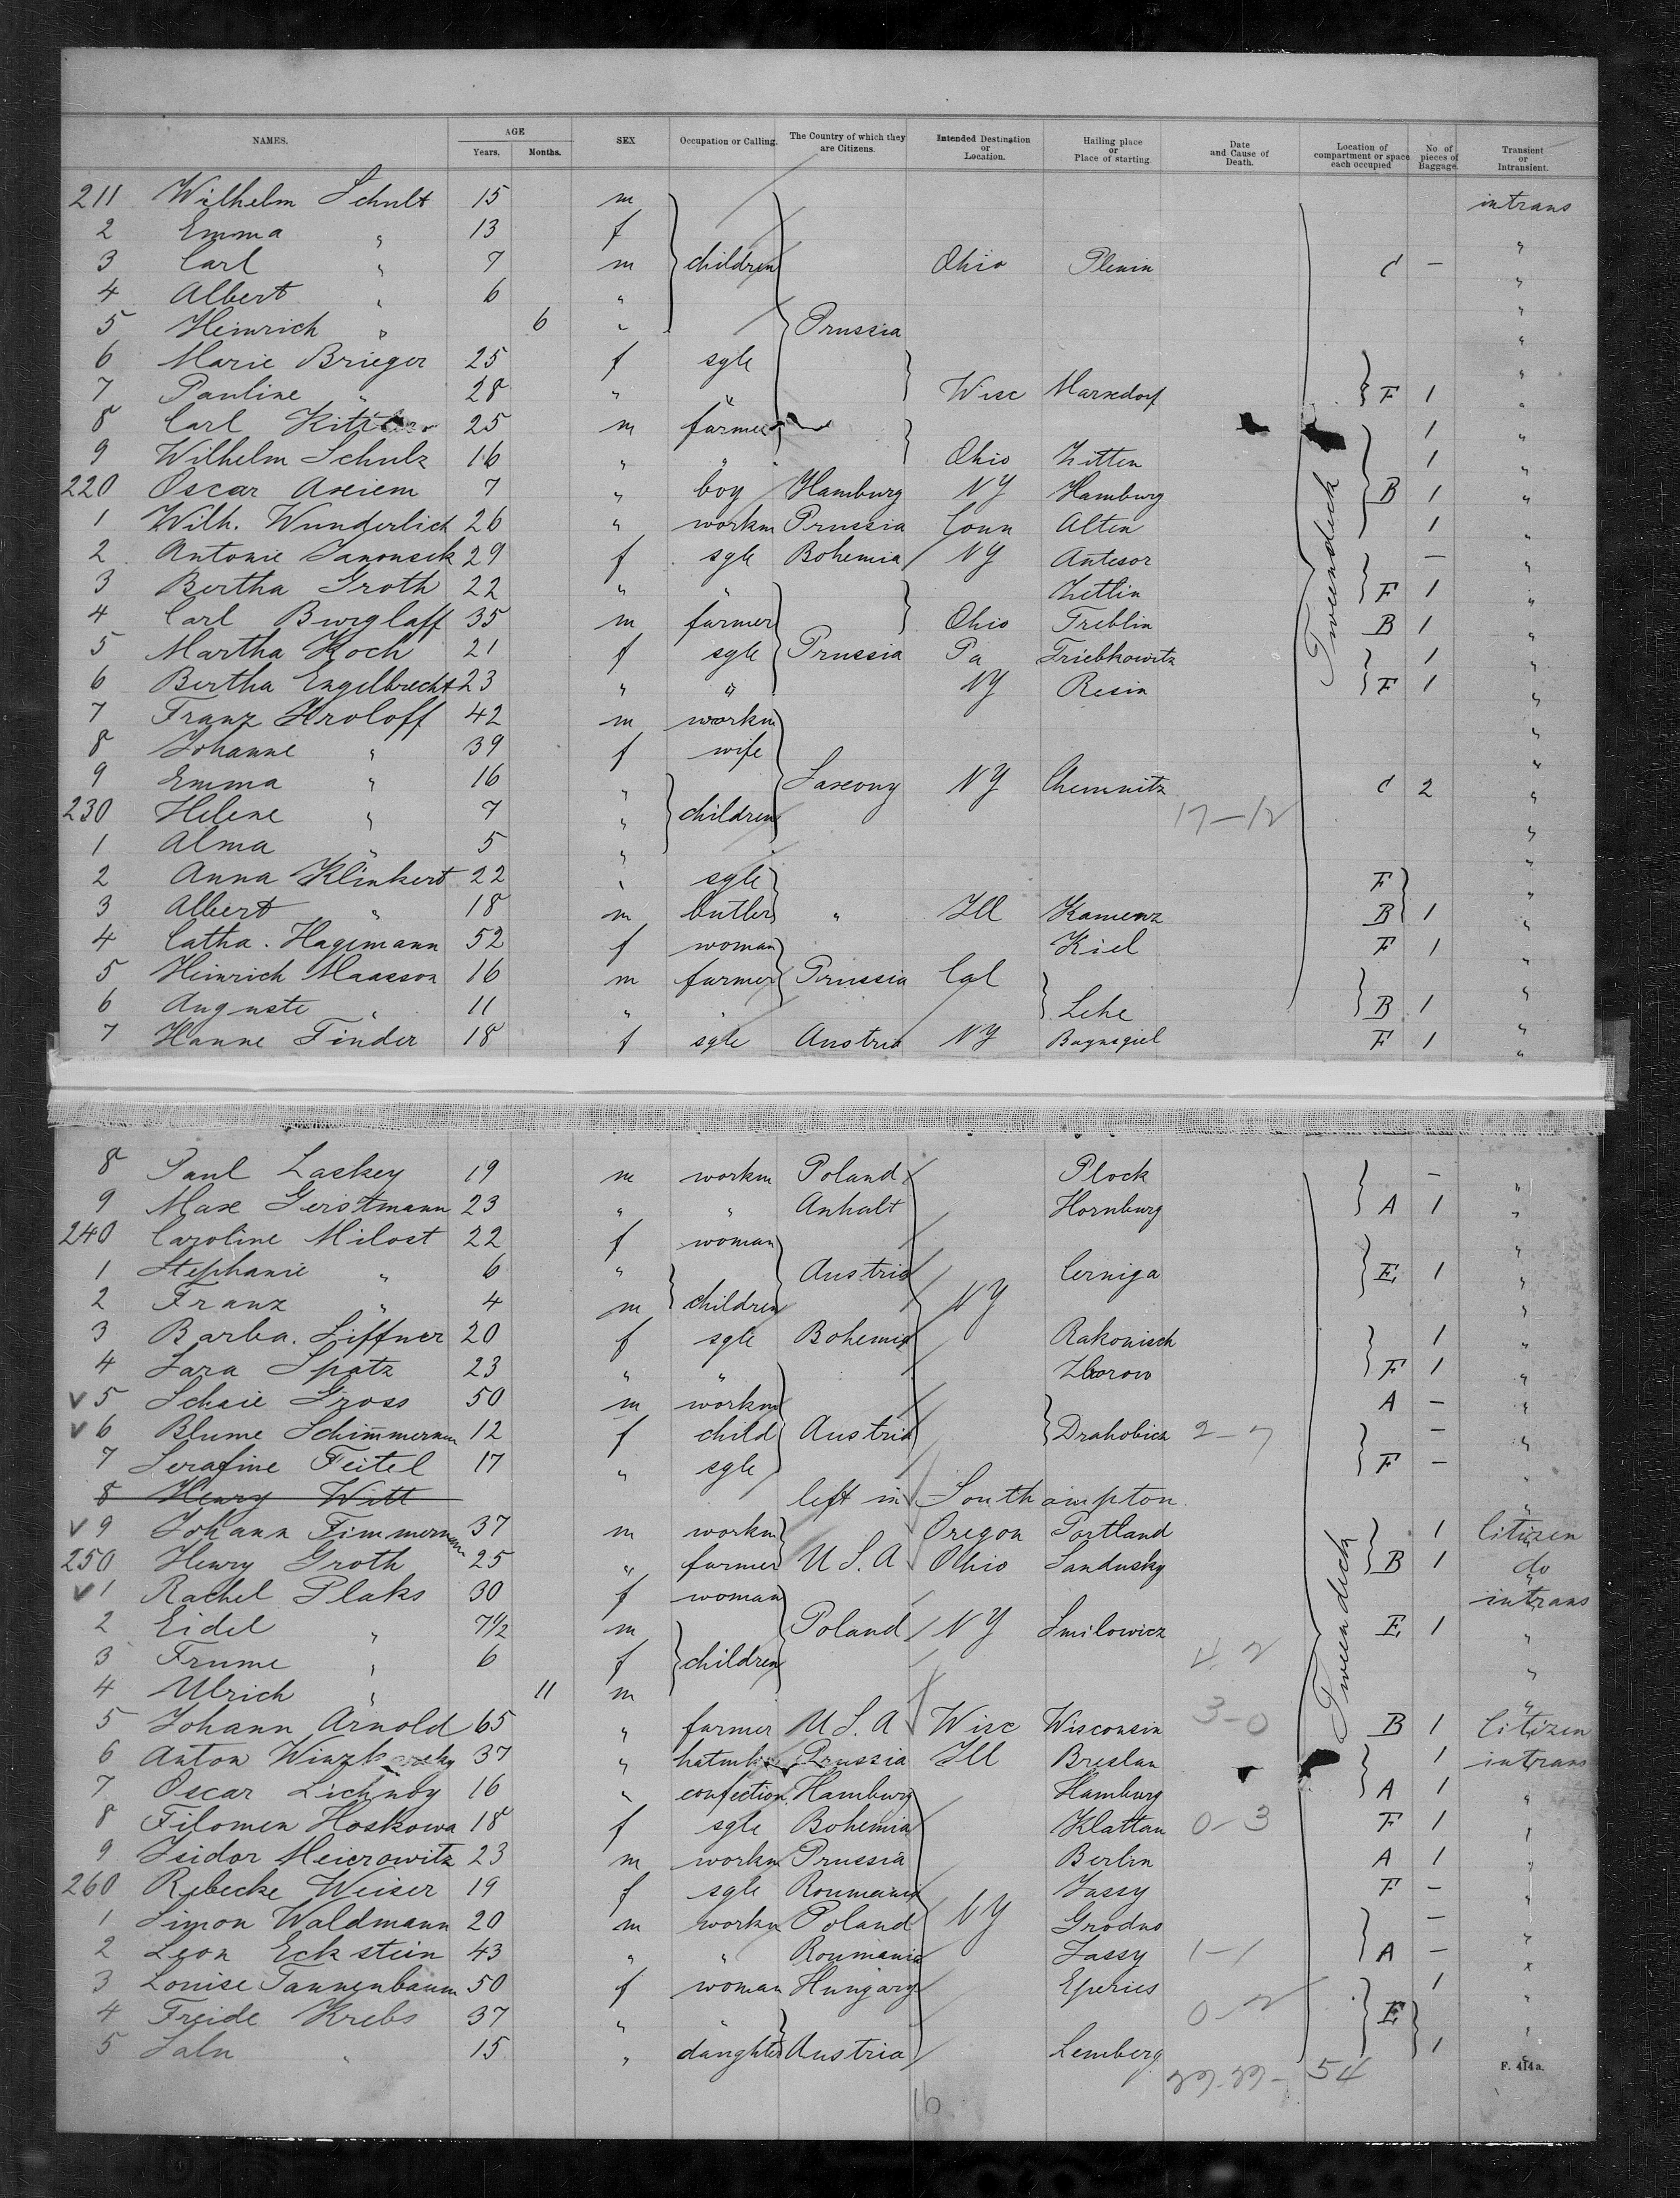 NAMES. AGE Years. Months. SEX Occupation or Calling. The Country of which they are Citizens. Intended Destination or Location. Hailing place or Place of starting. Date and Cause of Death. Location of compartment or space each occupied No of pieces of Baggage. Transient or Intransient.
211 Wilhelm Schult 15 m intrans
2 Emma " 13 f "
3 Carl " 7 m children Ohio Plenin C — "
4 Albert " 6 " "
5 Heinrich " 6 " Prussia "
6 Marie Brieger 25 f sgle "
7 Pauline " 28 " " Wisc Marxdorf F 1 "
8 Carl 25 m farmer 1 "
9 Wilhelm Schulz 16 " " Ohio Zitten 1 "
220 Oscar Axiem 7 " boy Hamburg NY Hamburg B 1 "
1 Wilh. Wunderlich 26 " workm Prussia Conn Alten 1 "
2 Antonie Janousek 29 f sgle Bohemia NY Antesor — "
3 Bertha Groth 22 " " Zetlin F 1 "
4 Carl Burglaff 35 m farmer Ohio Treblin B 1 "
5 Martha Koch 21 f sgle Prussia Pa Friebkowitz 1 "
6 Bertha Engelbrecht 23 " " NY Resin F 1 "
7 Franz Kroloff 42 m workm "
8 Johanne " 39 f wife "
9 Emma " 16 " Saxony NY Chemnitz C 2 "
230 Helene " 7 " children 17–12 "
1 Alma " 5 " "
2 Anna Klinkert 22 " sgle F "
3 Albert " 18 m butler " Ill Kamenz B 1 "
4 Catha. Hagemann 52 f woman Kiel F 1 "
5 Heinrich Maasson 16 m farmer Prussia Cal "
6 Auguste " 11 " " Lehe B 1 "
7 Hanne Finder 18 f sgle Austria NY F 1 "
Tweendeck
8 Paul Laskey 19 m workm Poland Plock — "
9 Max Gerstmann 23 " " Anhalt Hornburg A 1 "
240 Caroline Milost 22 f woman "
1 Stephanie " 6 " Austria Cerniga E 1 "
2 Franz " 4 m children NY "
3 Barba. Liffner 20 f sgle Bohemia Rakonisch 1 "
4 Sara Spatz 23 " " Zborow F 1 "
v 5 Schaie Gross 50 m workm A — "
v 6 Blume Schimmerman 12 f child Austria Drahobicz 2–7 — "
7 Serafine Feitel 17 " sgle F — "
8 Henry Witt left in Southampton "
v 9 Johann Timmerman 37 m workm Oregon Portland 1 Citizen
250 Henry Groth 25 " farmer U.S.A Ohio Sandusky B 1 do
v 1 Rachel Plaks 30 f woman intrans
2 Eidel " 7 1/2 m Poland NY Smilowicz E 1 "
3 Frume " 6 f children 4–2 "
4 Ulrich " 11 m "
5 Johann Arnold 65 " farmer U.S.A Wisc Wisconsin 3–0 B 1 Citizen
6 Anton 37 " Prussia Ill Breslau 1 intrans
7 Oscar Lichnoy 16 " confection. Hamburg Hamburg A 1 "
8 Filomen Hoskowa 18 f sgle Bohemia Klattau 0–3 F 1 "
9 Isidor Meierowitz 23 m workm Prussia Berlin A 1 "
260 Rebecke Weiser 19 f sgle Roumania Jassy F — "
1 Simon Waldmann 20 m workm Poland NY Grodno — "
2 Leon Eckstein 43 " " Roumania Jassy 1–1 A — "
3 Louise Tannenbaum 50 f woman Hungary Eperies 1 "
4 Freide Krebs 37 " " 0–2 E "
5 Saln " 15 " daughter Austria Lemberg 1 "
Tweendeck
29-29– 54
16
F. 414a.